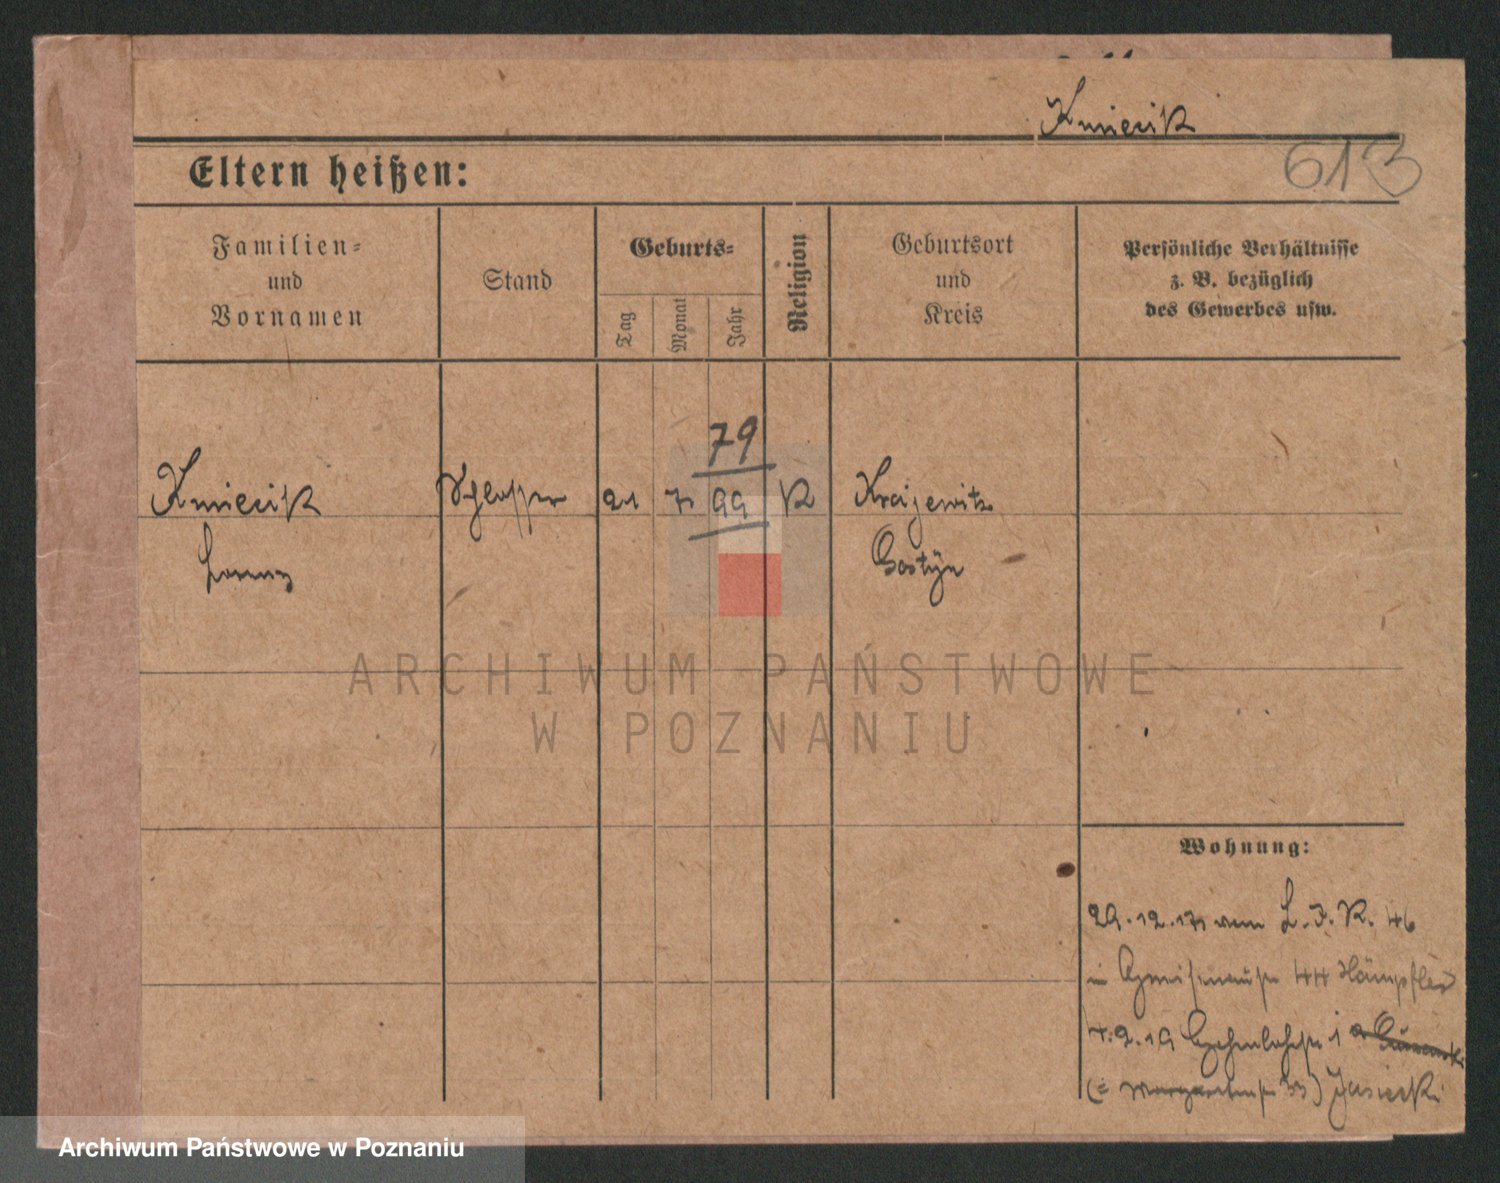 Kmiecik
613
Eltern heißen:
Familien-
und
Vornamen
Stand
Geburts-
Tag
Monat
Jahr
Religion
Geburtsort
und
Kreis
Persönliche Verhältnisse
z. B. bezüglich
des Gewerbes usw.
79
Kmiecik Schlosser 21 7 99 K Krajewitz
Lorenz Gostyn
ARCHIWUM PAŃSTWOWE
W POZNANIU
Wohnung:
29.12.17 vom L.I.R. 46
in 44
7.2.19 1
33) Jasiecki
Archiwum Państwowe w Poznaniu